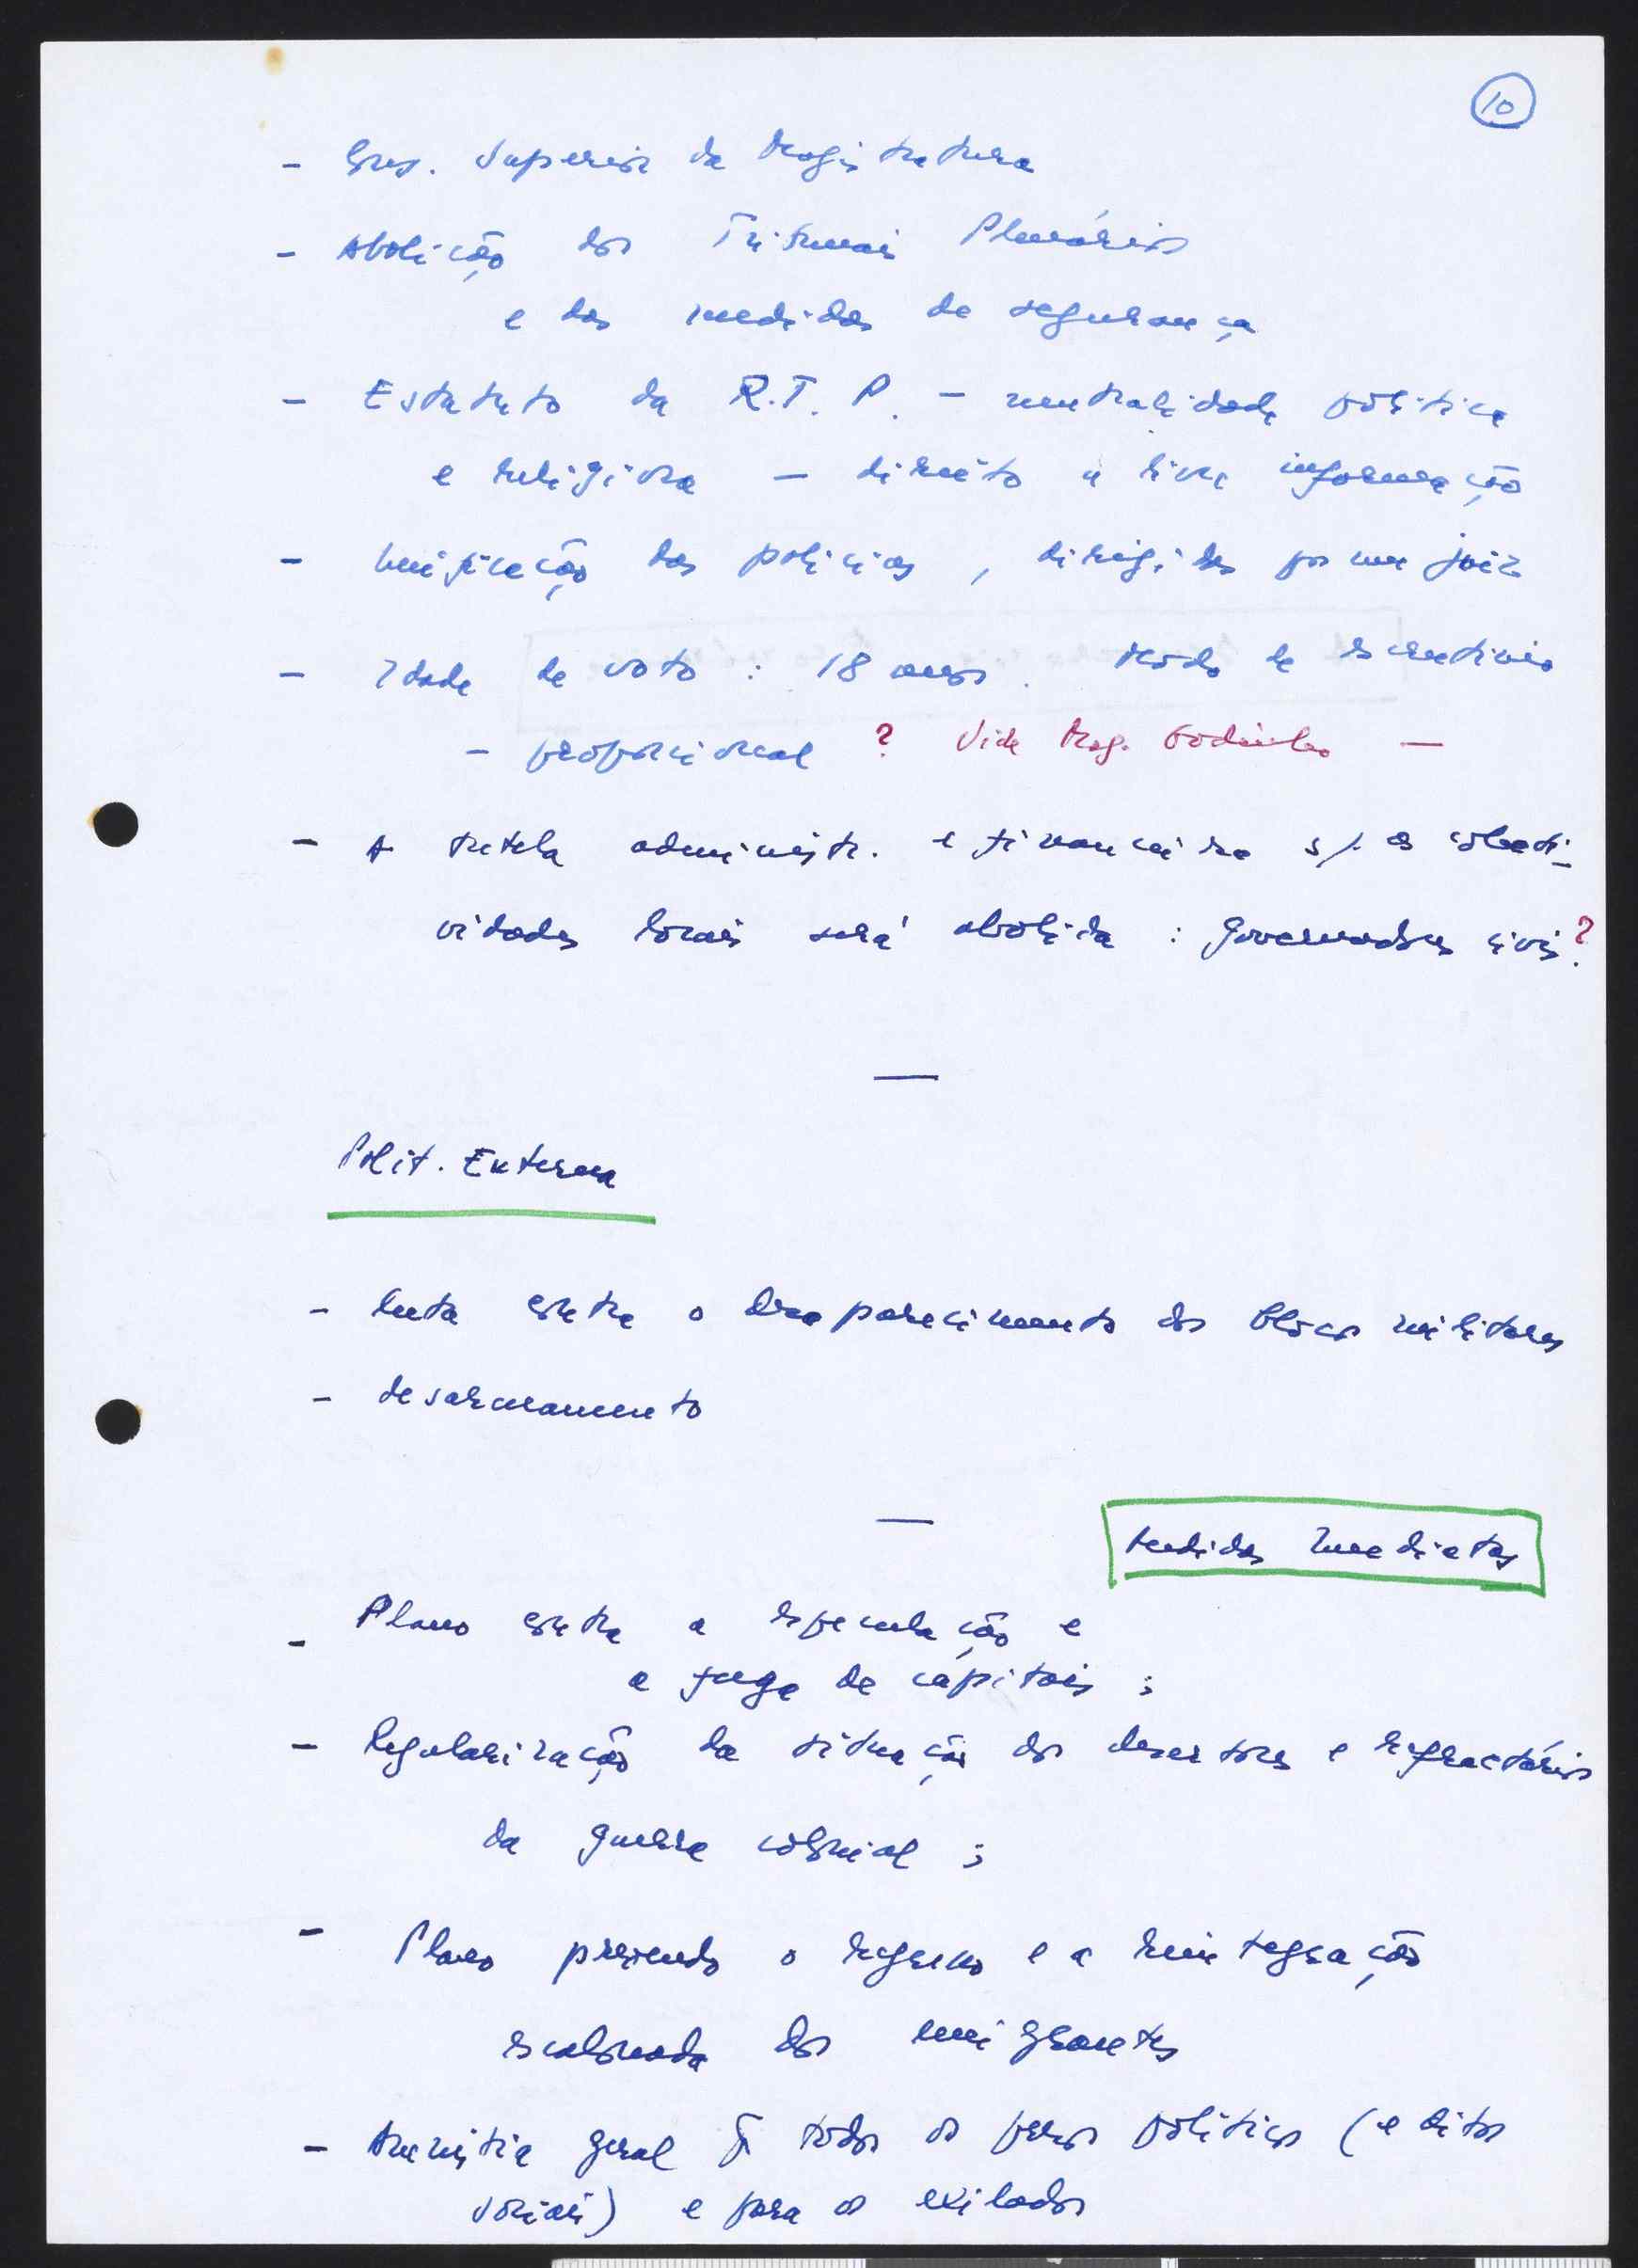 10
- Cons. Superior da Magistratura
- Abolição dos Tribunais Plenários
e das medidas de segurança
- Estatuto da R.T.P. - neutralidade política
e religiosa - direito a livre informação
- Unificação das polícias, dirigidas por um juiz
- Idade de voto : 18 anos. Modo de escrutínio
- proporcional ? Vide Mag. Godinho -
- A tutela administr. e financeira s/. as colecti-
vidades locais será abolida : governadores civis ?
Polit. Externa
- luta contra o desaparecimento dos blocos militares
- desarmamento
Medidas Imediatas
- Plano contra a especulação e
a fuga de capitais ;
- Regularização da situação dos desertores e refractários
da guerra colonial ;
- Plano prevendo o regresso e a reintegração
escalonada dos emigrantes
- Amnistia geral p. todos os presos políticos (e ditos
sociais) e para os exilados